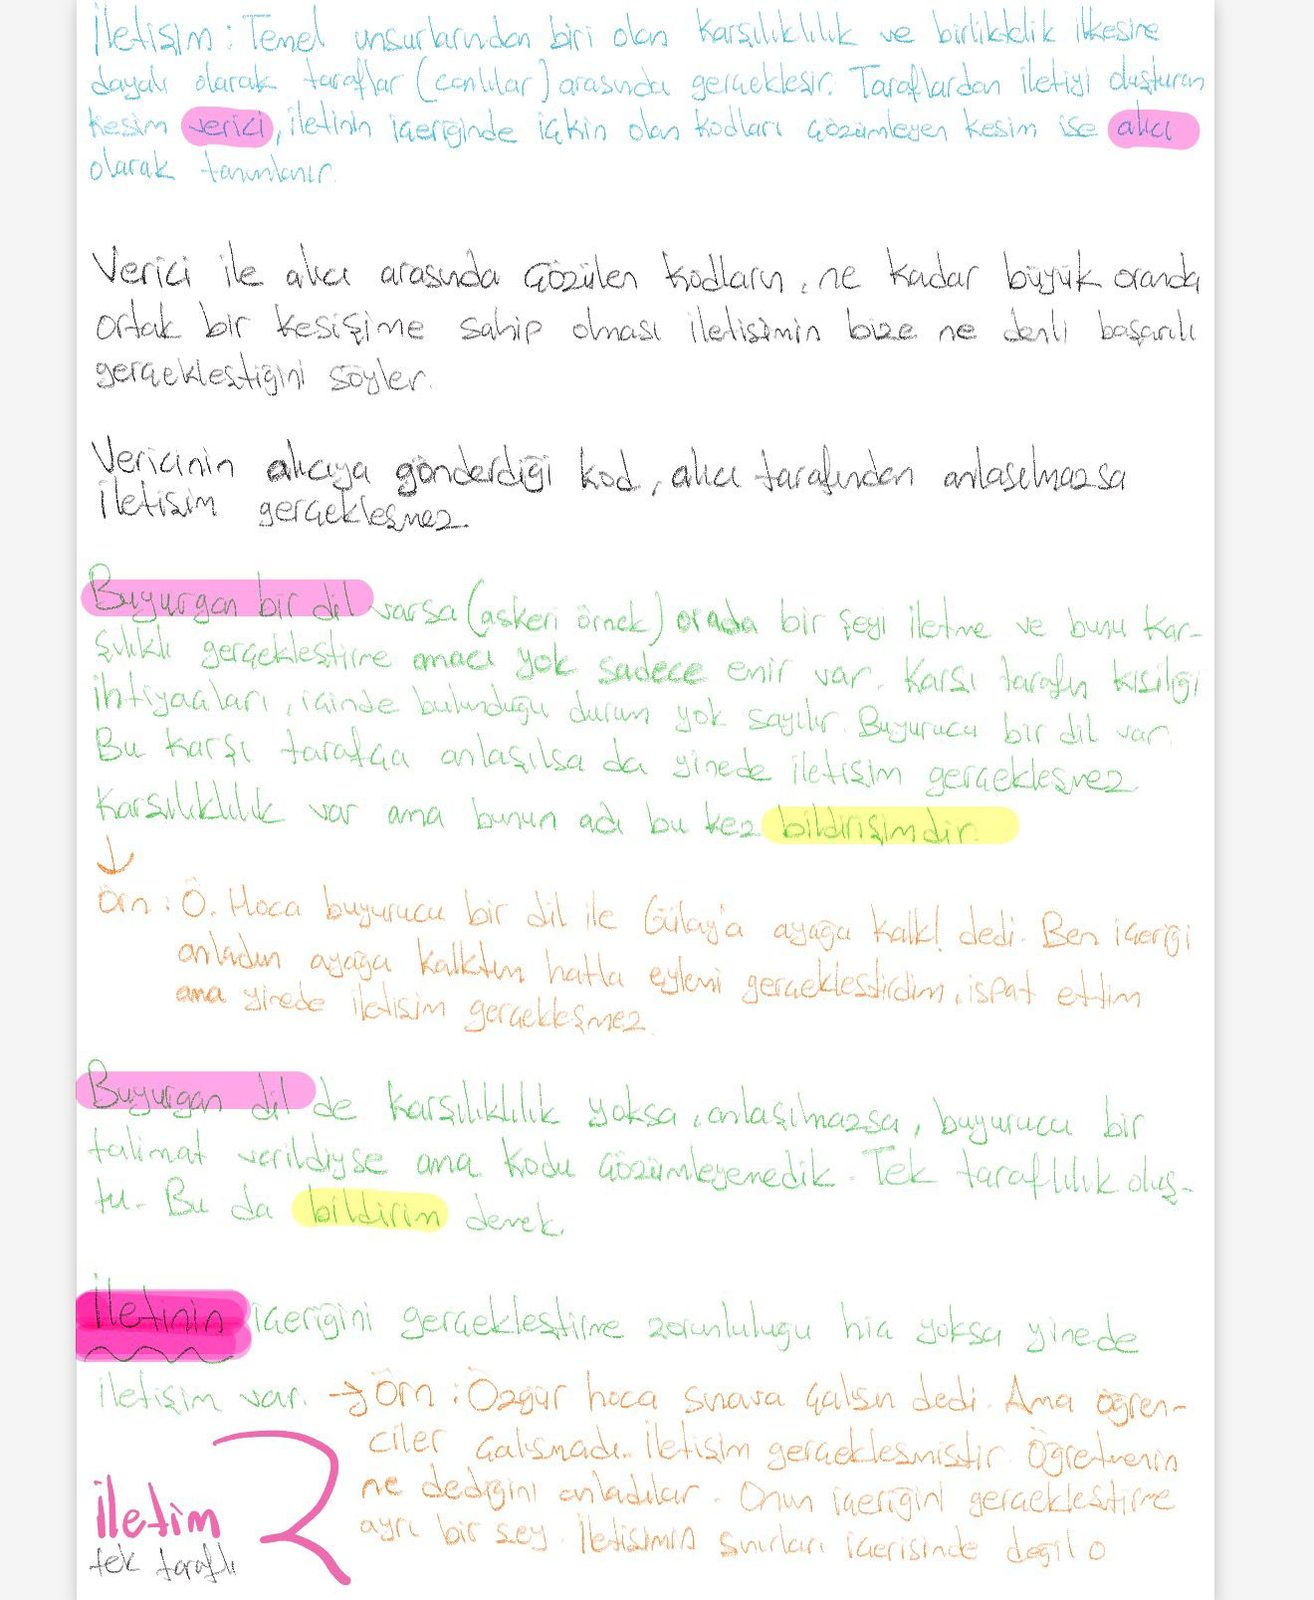 İletişim : Temel unsurlarından biri olan karşılıklılık ve birliktelik ilkesine
dayalı olarak taraflar (canlılar) arasında gerçekleşir. Taraflardan iletiyi oluşturan
kesim verici, iletinin içeriğinde içkin olan kodları çözümleyen kesim ise alıcı
olarak tanımlanır.
Verici ile alıcı arasında çözülen kodların, ne kadar büyük oranda
ortak bir kesişime sahip olması iletişimin bize ne denli başarılı
gerçekleştiğini söyler.
Vericinin alıcıya gönderdiği kod, alıcı tarafından anlaşılmazsa
iletişim gerçekleşmez.
Buyurgan bir dil varsa (askeri örnek) orada bir şeyi iletme ve bunu kar-
şılıklı gerçekleştirme amacı yok sadece emir var. Karşı tarafın kişiliği
ihtiyaçları, içinde bulunduğu durum yok sayılır. Buyurucu bir dil var.
Bu karşı tarafça anlaşılsa da yinede iletişim gerçekleşmez.
Karşılıklılık var ama bunun adı bu kez bildirişimdir.
Örn : Ö. Hoca buyurucu bir dil ile Gülay'a ayağa kalk! dedi. Ben içeriği
anladım ayağa kalktım hatta eylemi gerçekleştirdim, ispat ettim
ama yinede iletişim gerçekleşmez.
Buyurgan dil de karşılıklılık yoksa, anlaşılmazsa, buyurucu bir
talimat verildiyse ama kodu çözümleyemedik. Tek taraflılık oluş-
tu. Bu da bildirim demek.
İletinin içeriğini gerçekleştirme zorunluluğu hiç yoksa yinede
iletişim var. → Örn : Özgür hoca sınava çalışın dedi. Ama öğren-
ciler çalışmadı.. İletişim gerçekleşmiştir. Öğretmenin
ne dediğini anladılar. Onun içeriğini gerçekleştirme
ayrı bir şey. İletişimin sınırları içerisinde değil o
İletim
tek taraflı